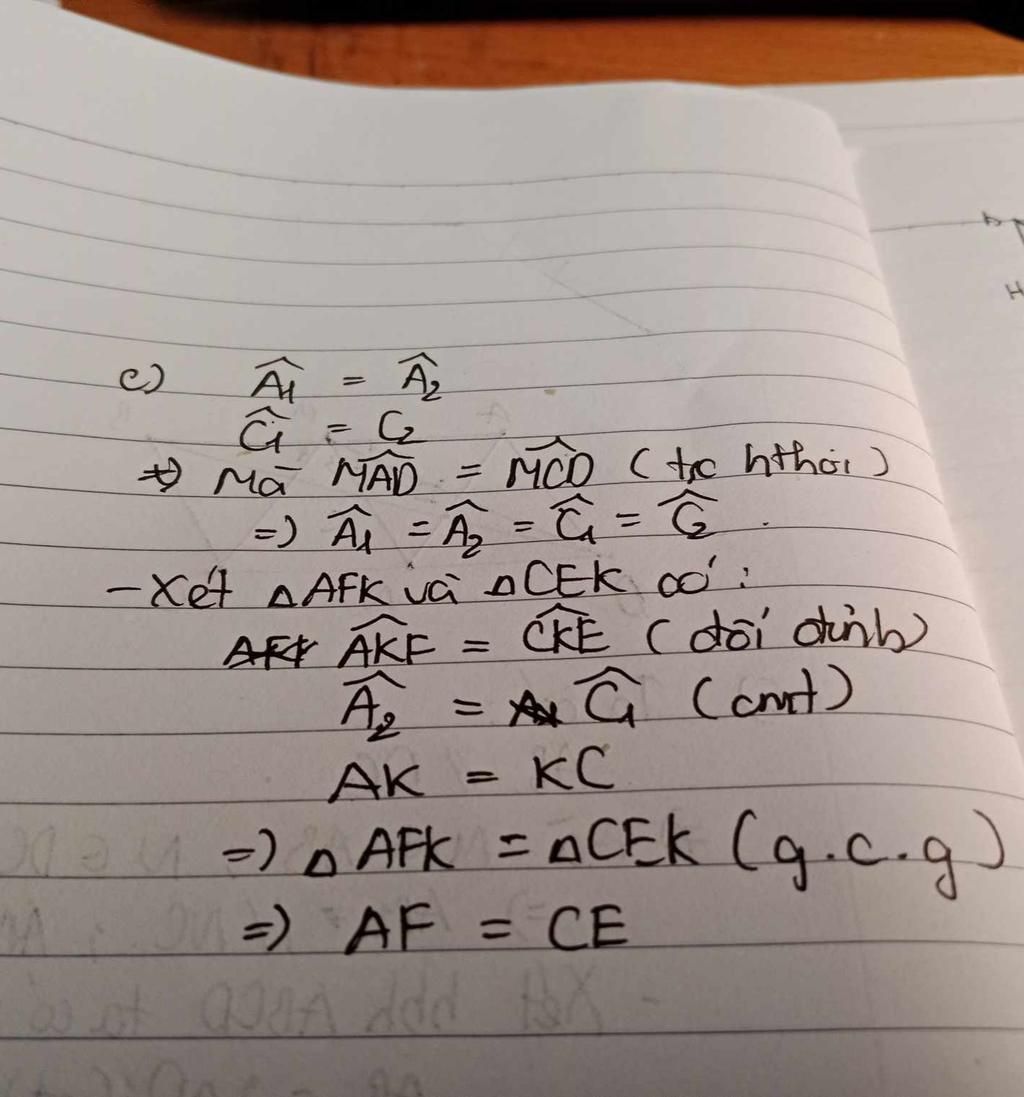 c) Â₁ = Â₂
Ĉ₁ = C₂
=> Mà \widehat{MAD} = \widehat{MCD} (t/c hthoi)
=> Â₁ = Â₂ = Ĉ₁ = Ĉ₂.
- Xét △AFK và △CEK có:
\widehat{AKF} = \widehat{CKE} (đối đỉnh)
Â₂ = Ĉ₁ (cmt)
AK = KC
=> △AFK = △CEK (g.c.g)
=> AF = CE
H